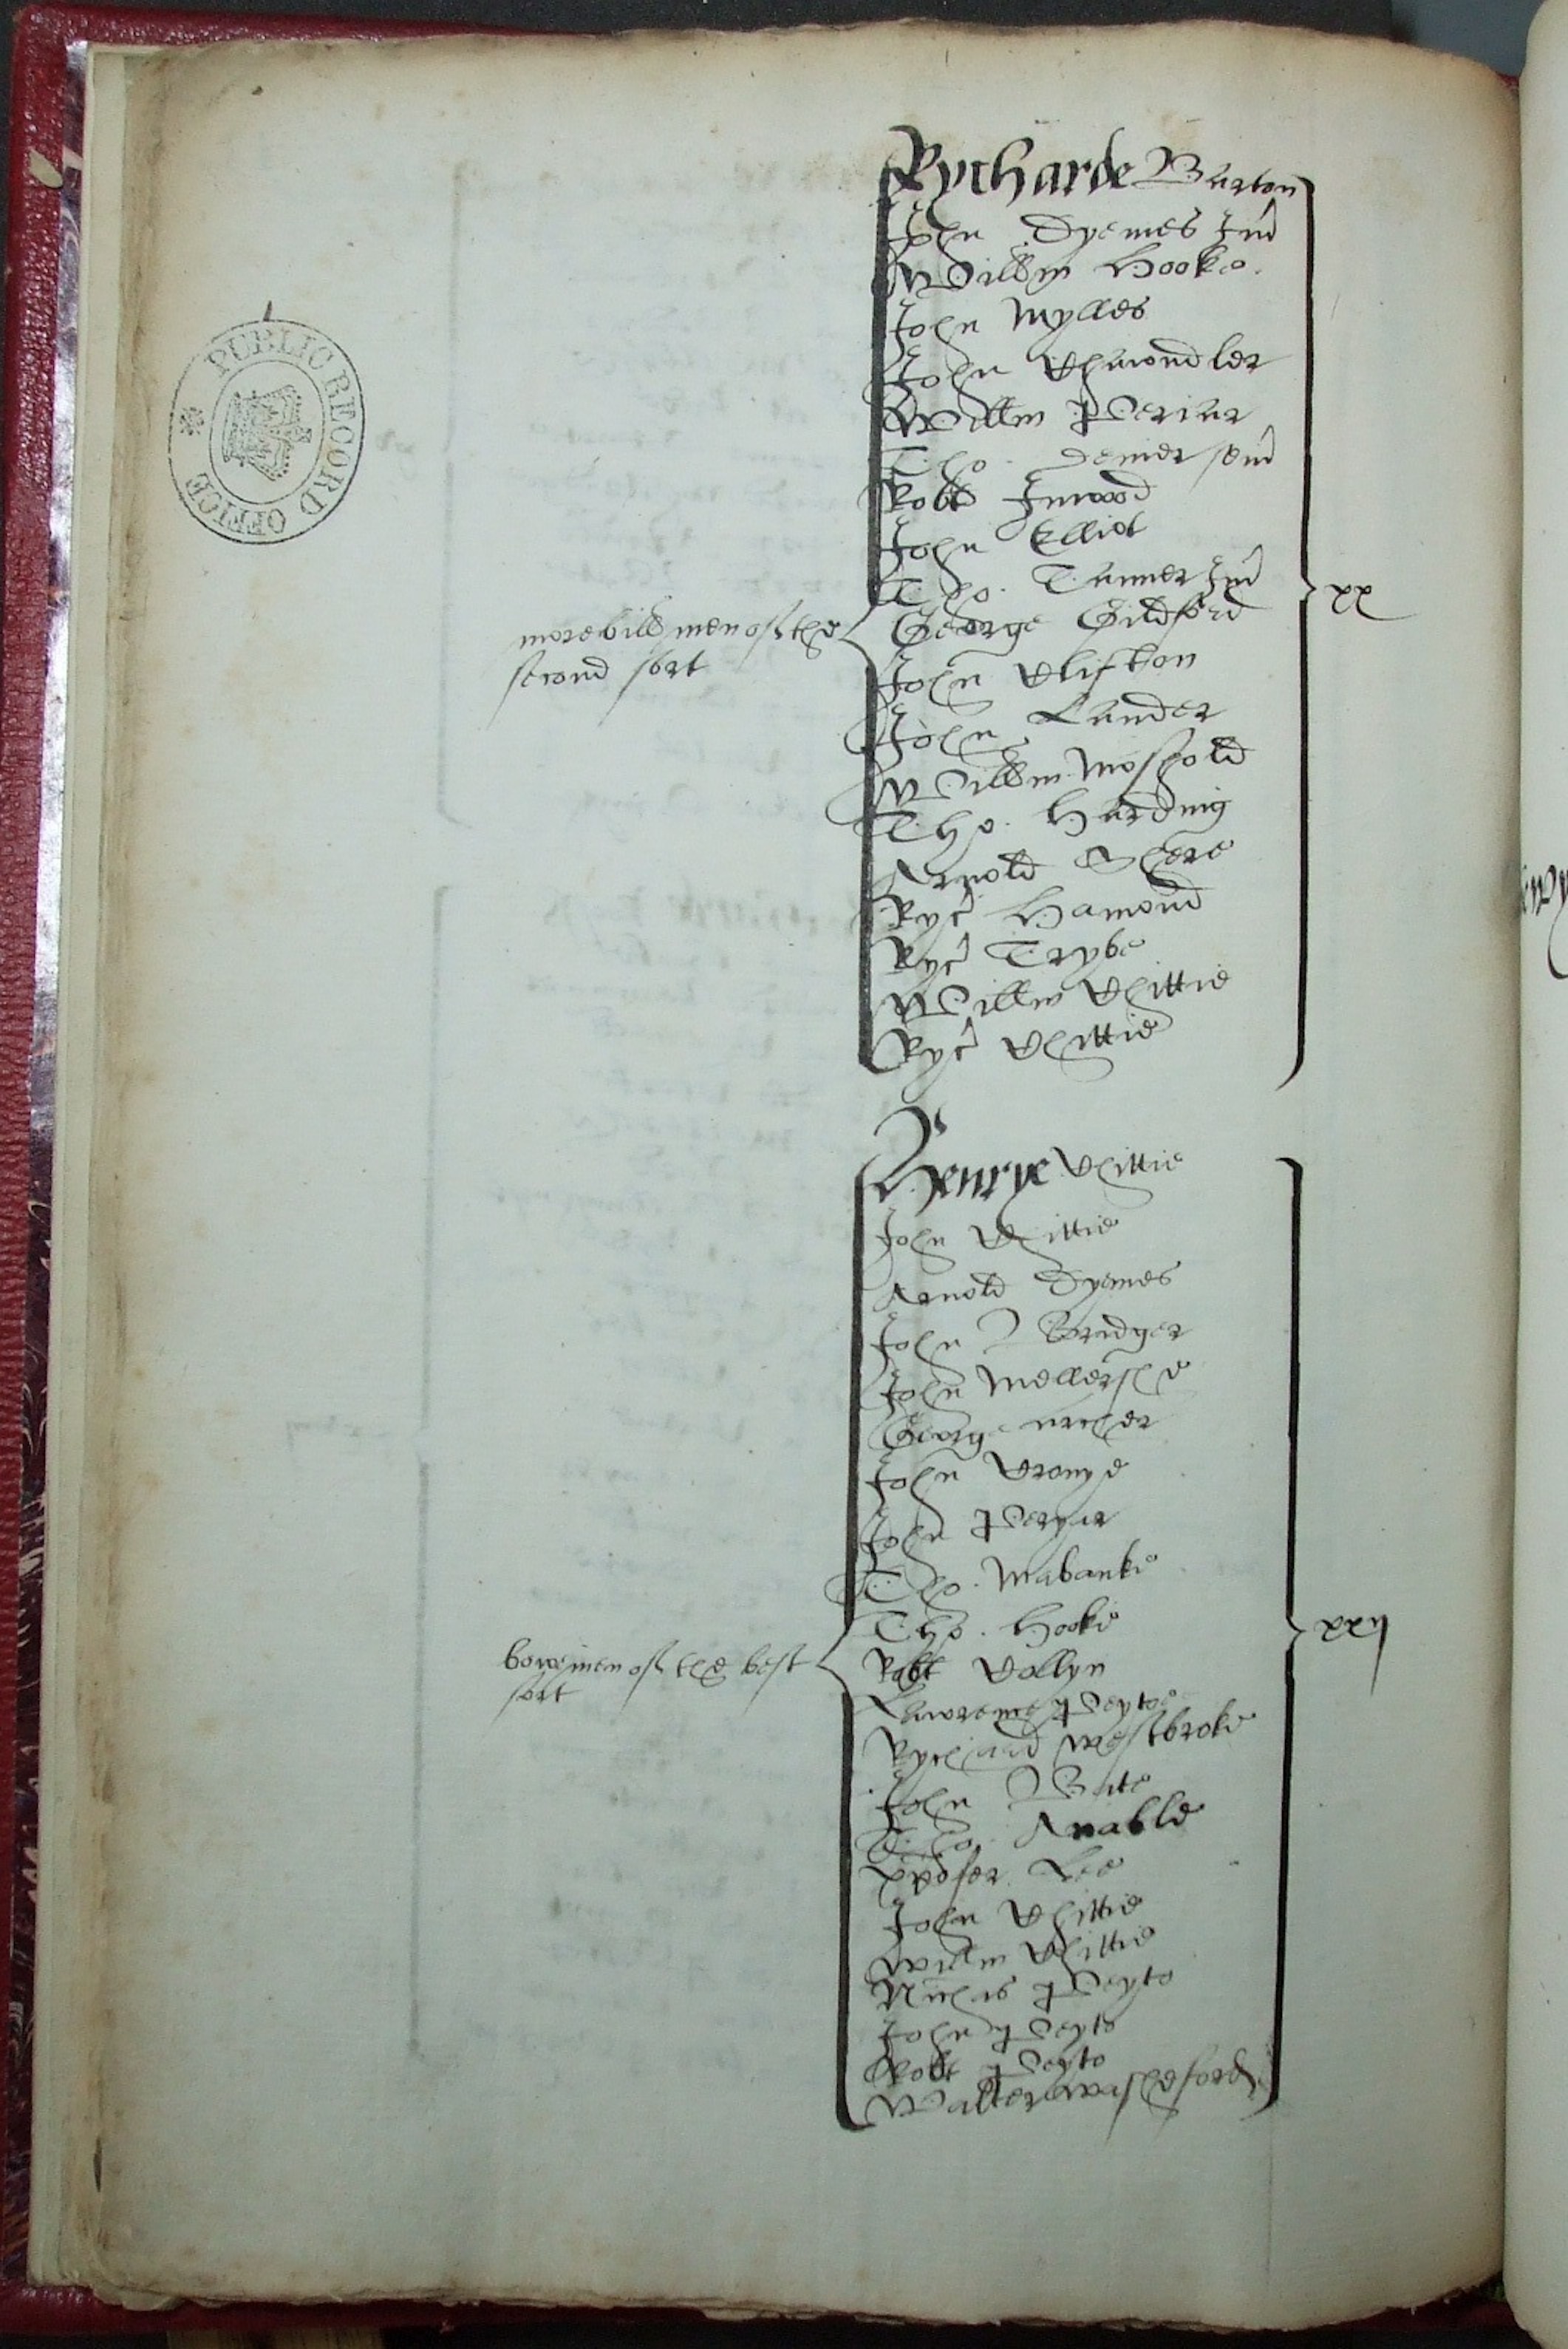 PUBLIC RECORD OFFICE
Rycharde Burton
John Dyemes Jun
Willm Hooke
John Mylles
John Chaundler
Willm Periar
Tho. Demer sen
Robt Inwood
John Elliot
Tho. Tanner Jun
George Gildford
John Clifton
John Lander
Willm Moshold
Tho. Harding
Arnold Shere
Ryc Hamond
Ryc Trybe
Willm Chittie
Ryc Chittie
more bill men of the
second sort
xx
Henrye Chittie
John Chittie
Arnold Dyemes
John Bridger
John Mellershe
George archer
John
John Peryar
Tho. Mabanke
Tho. Hooke
Robt Collyn
Lawrence Peytoe
Rychard Westbroke
John Bate
Tho. Anable
Lee
John Chittie
Willm Chittie
Nichas Peyto
John Peyto
Robt Peyto
Walter Washeford
bowemen of the best
sort
xxij